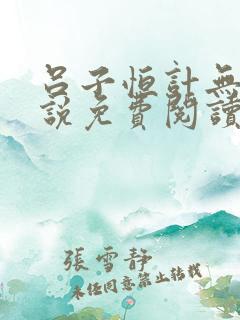 呂子恒計無
說免費閱讀
張雪靜
未經同意禁止轉載